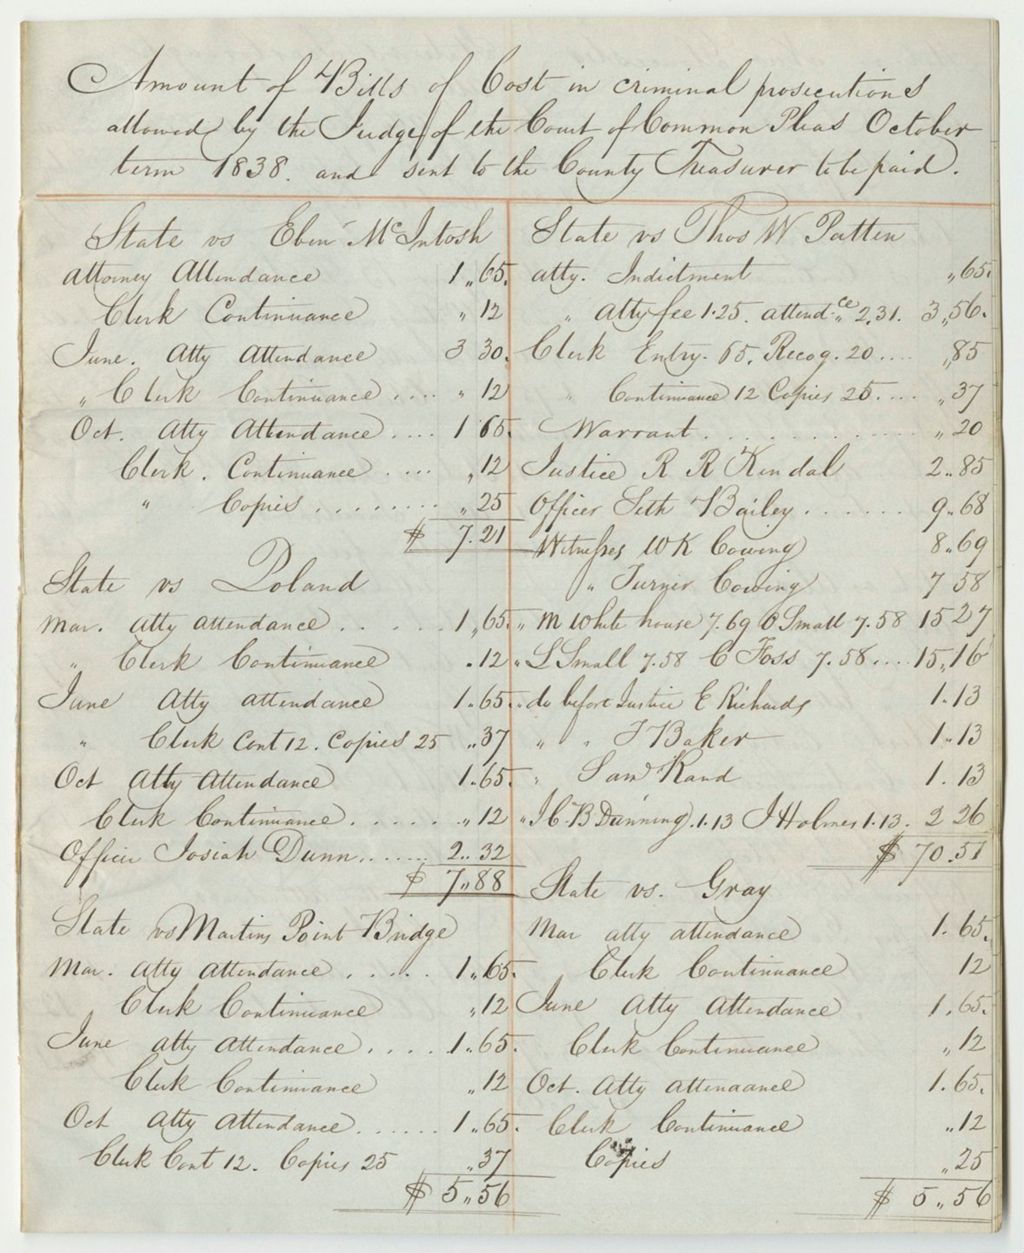 Amount of Bills of Cost in criminal prosecutions
allowed by the Judge of the Court of Common Pleas October
term 1838. and sent to the County Treasurer to be paid.
State vs Eben McIntosh
Attorney Attendance 1,,65.
Clerk Continuance ,,12
June. Atty Attendance 3 30.
,, Clerk Continuance .... ,,12
Oct. Atty Attendance .... 1 65.
Clerk. Continuance .... ,,12
" Copies ........ ,,25
$ 7.21
State vs Poland
Mar. Atty attendance ...... 1,,65.
,, Clerk Continuance .12
June Atty attendance 1..65.
" Clerk Cont 12. Copies 25 ,,37
Oct Atty Attendance 1..65.
Clerk Continuance ...... ,,12
Officer Josiah Dunn ...... 2..32
$ 7,,88
State vs Martins Point Bridge
Mar. Atty Attendance ..... 1,,65.
Clerk Continuance ,,12
June atty Attendance .... 1..65.
Clerk Continuance ,,12
Oct Atty Attendance ...... 1..65.
Clerk Cont 12. Copies 25 ,,37
$ 5,,56
State vs Thos W Patten
atty. Indictment ,,65.
" Atty fee 1.25. attendce 2.31. 3,,56.
Clerk Entry. 65. Recog. 20 .... ,,85
" Continuance 12 Copies 25 .... ,,37
Warrant ............ ,,20
Justice R R Kendal 2..85
Officer Seth Bailey ...... 9..68
Witnesses W K Cowing 8..69
" Turner Cowing 7 58
" M White house 7.69 O Small 7.58 15 27
" L Small 7.58 C Foss 7.58 .... 15,,16
" do before Justice E Richards 1.13
" " J Baker 1..13
" Saml Rand 1.13
" J C. B Dunning. 1.13 J Holmes 1.13. 2 26
$ 70.51
State vs. Gray
Mar atty attendance 1.65.
Clerk Continuance 12
June Atty Attendance 1.65.
Clerk Continuance ,,12
Oct. Atty Attendance 1.65.
Clerk Continuance ,,12
Copies ,,25
$ 5,,56